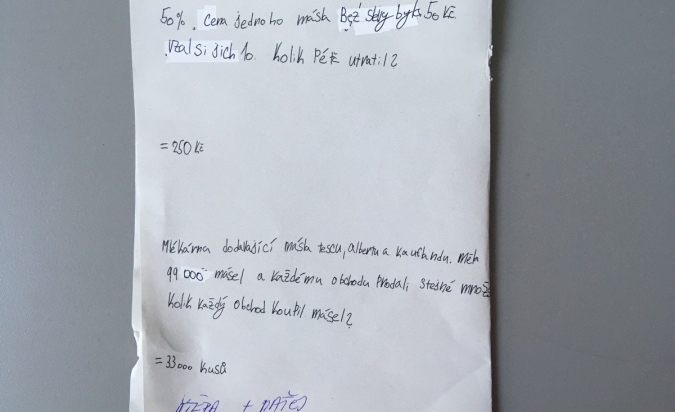 50%. Cena jednoho másla Bez slevy byla 50 Kč.
Vzal si jich 10. Kolik Péťa utratil?
= 250 Kč
Mlékárna dodavající másla tescu, albertu a kauflandu. měla
99 000 másel a každému obchodu Prodali stejné množ
Kolik každý obchod koupil másel?
= 33000 kusů
+ MATĚJ